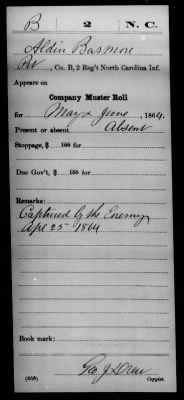 B 2 N. C.
Aldin Basmore
Pvt, Co. B, 2 Reg't North Carolina Inf.
Appears on
Company Muster Roll
for May & June, 1864.
Present or absent Absent
Stoppage, $ 100 for
Due Gov't, $ 100 for
Remarks:
Captured by the Enemy
Apl 25 1864
Book mark:
Geo J Drew
(858) Copyist.